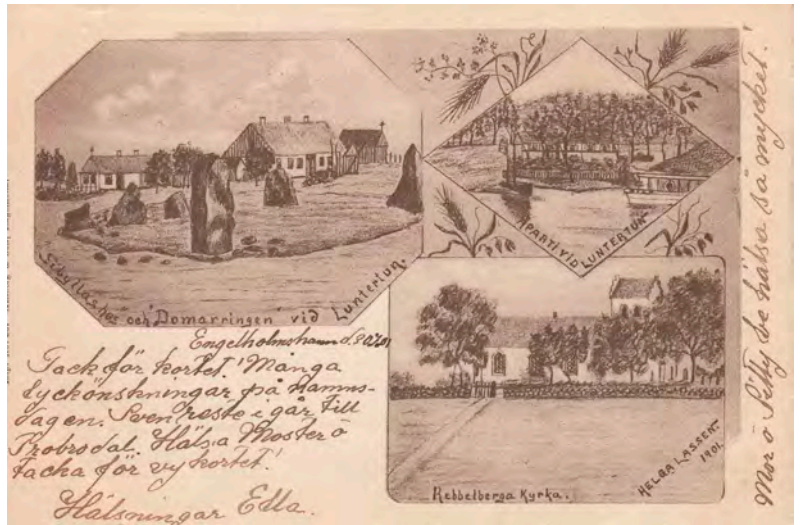 Sibyllas hog och "Domarringen" vid Luntertun.
PARTI VID LUNTERTUN
Rebbelberga Kyrka.
HELGA LASSEN
1901.
Engelholmshamn d.
Tack för kortet! Många
lyckönskningar på namns-
dagen. Sven reste i går till
Hälsa Moster o
tacka för vykortet!
Hälsningar Edla.
Mor o Sitty be hälsa så mycket!